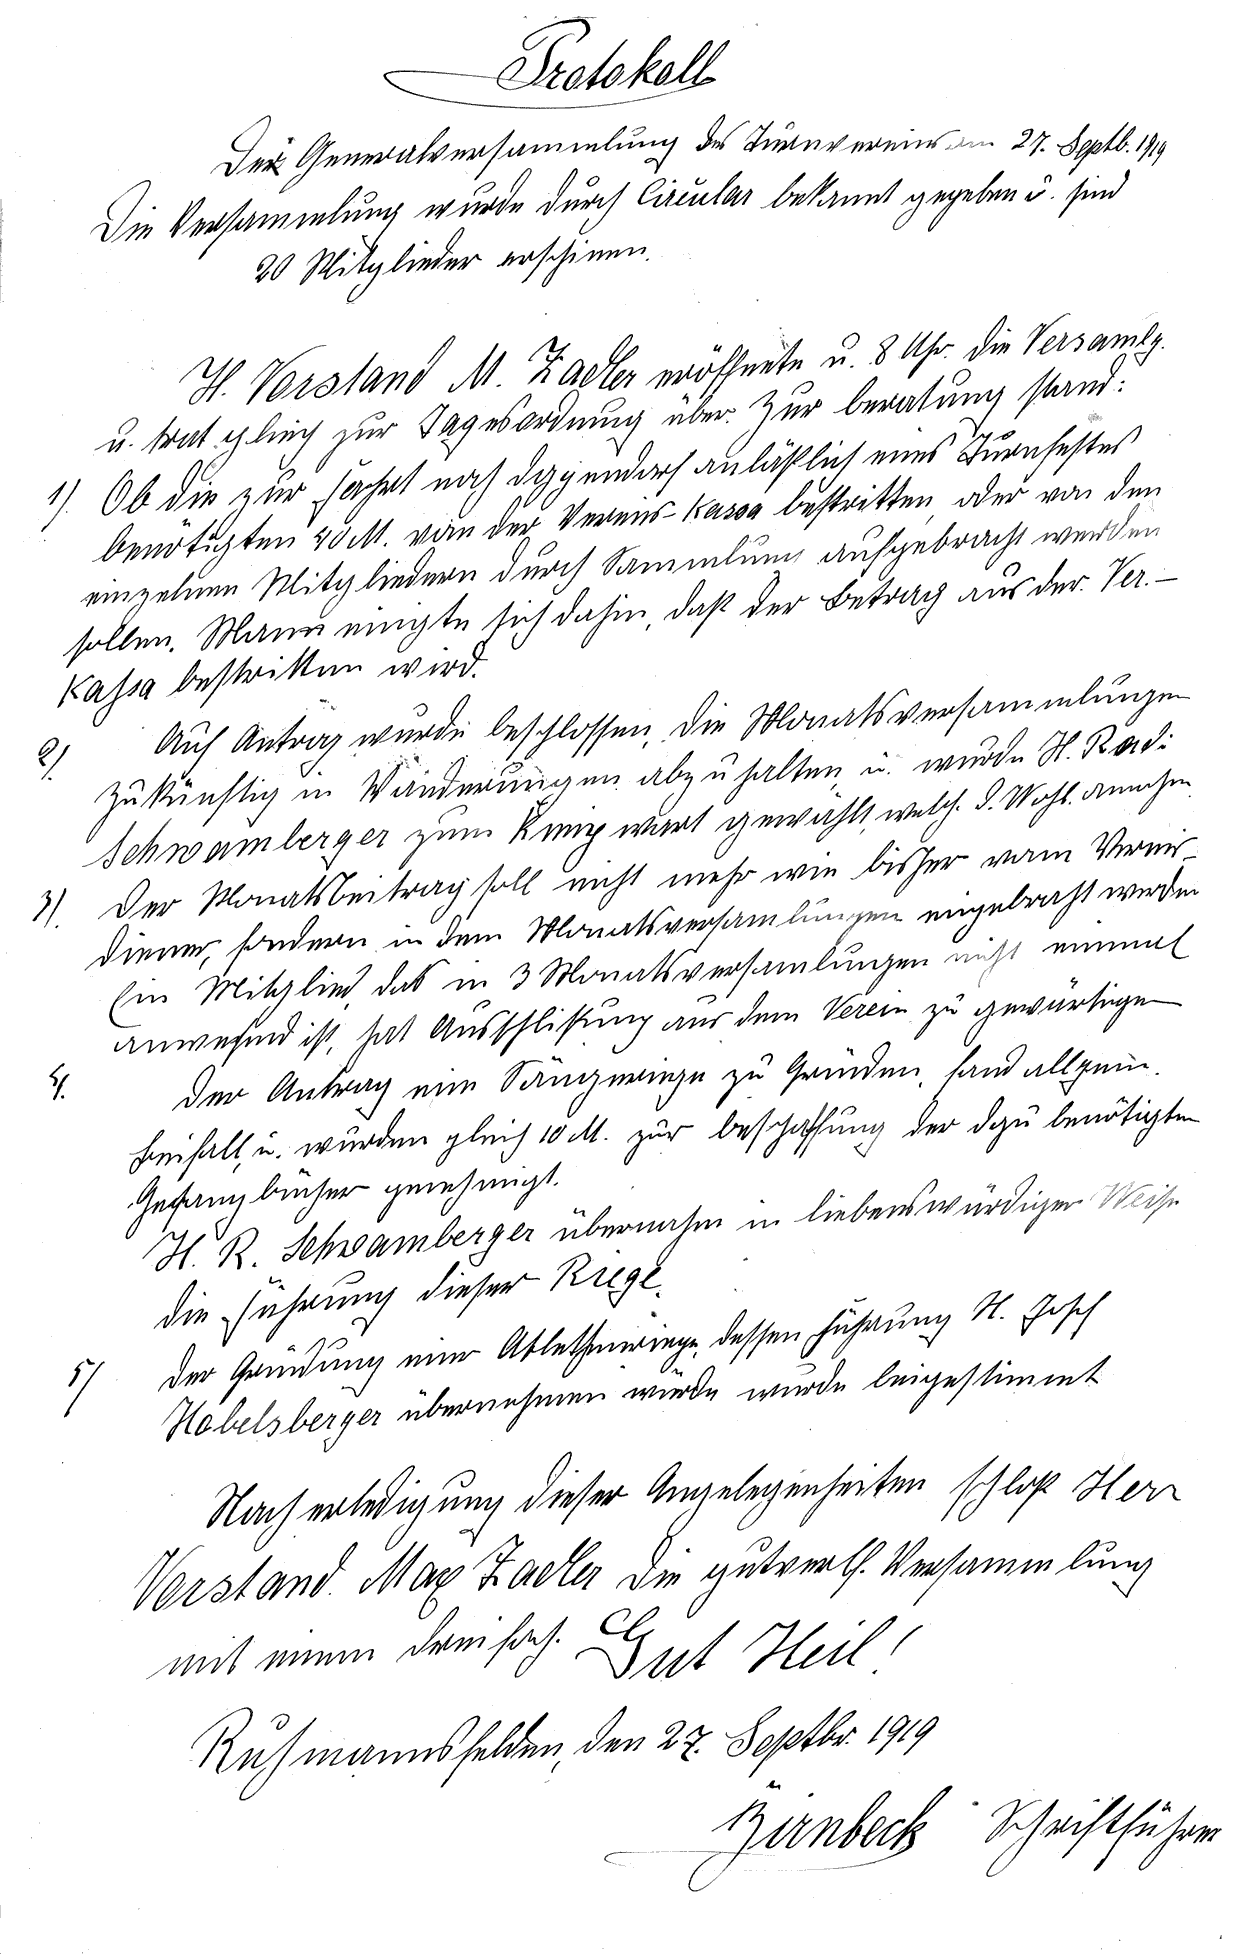 Protokoll
Der Generalversammlung des Turnvereins am 27. Septb. 1919
Die Versammlung wurde durch Circular bekannt gegeben u. sind
20 Mitglieder erschinen.
H. Vorstand M. Zadler eröffnete u. 8 Uhr. die Versamlg.
u. trat gleich zur Tagesordnung über. Zur beratung stand:
1) Ob die zur Fahrt nach Deggendorf anläßlich eines Turnfestes
benötigten 20 M. von der Vereins-Kassa bestritten oder von den
einzelnen Mitgliedern durch Sammlung aufgebracht werden
sollen. Mann einigte sich dahin, daß der Betrag aus der Ver.-
Kassa bestritten wird.
2) Auf Antrag wurde beschlossen, die Monatsversammlungen
zukünftig in Wanderungen abzuhalten u. wurde H. Radi
Schwamberger zum Kneipwart gewählt, welch. d. Wahl annahm
3) Der Monatsbeitrag soll nicht mehr wie bisher vom Vereins-
diener, sondern in den Monatsversamlungen eingebracht werden
Ein Mitglied das in 3 Monatsversamlungen nicht einmal
anwesend ist, hat Ausschlißung aus dem Verein zu gewärtigen
4. Der Antrag eine Sängerriege zu Gründen, fand allgem.
Beifall, u. wurden gleich 10 M. zur beschaffung der dazu benötigten
Gesangbücher genehmigt.
H. R. Schwamberger übernahm in liebenswürdiger Weise
die Führung dieser Riege.
5) Der Gründung einer Athletenriege, dessen Führung H. Josef
Habelsberger übernehmen würde wurde beigestimmt
Nach erledigung dieser Angelegenheiten schloß Herr
Vorstand Max Zadler die gutverlf. Versammlung
mit einem dreifach. Gut Heil!
Ruhmannsfelden, den 27. Septbr. 1919
Zirnbeck Schriftführer